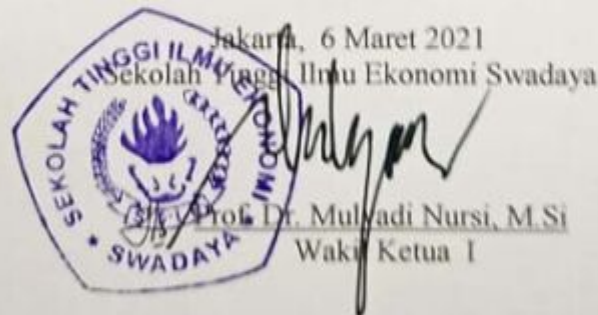 Jakarta, 6 Maret 2021
Sekolah Tinggi Ilmu Ekonomi Swadaya
SEKOLAH TINGGI ILMU EKONOMI
* SWADAYA *
Prof. Dr. Mulyadi Nursi, M.Si
Wakil Ketua I